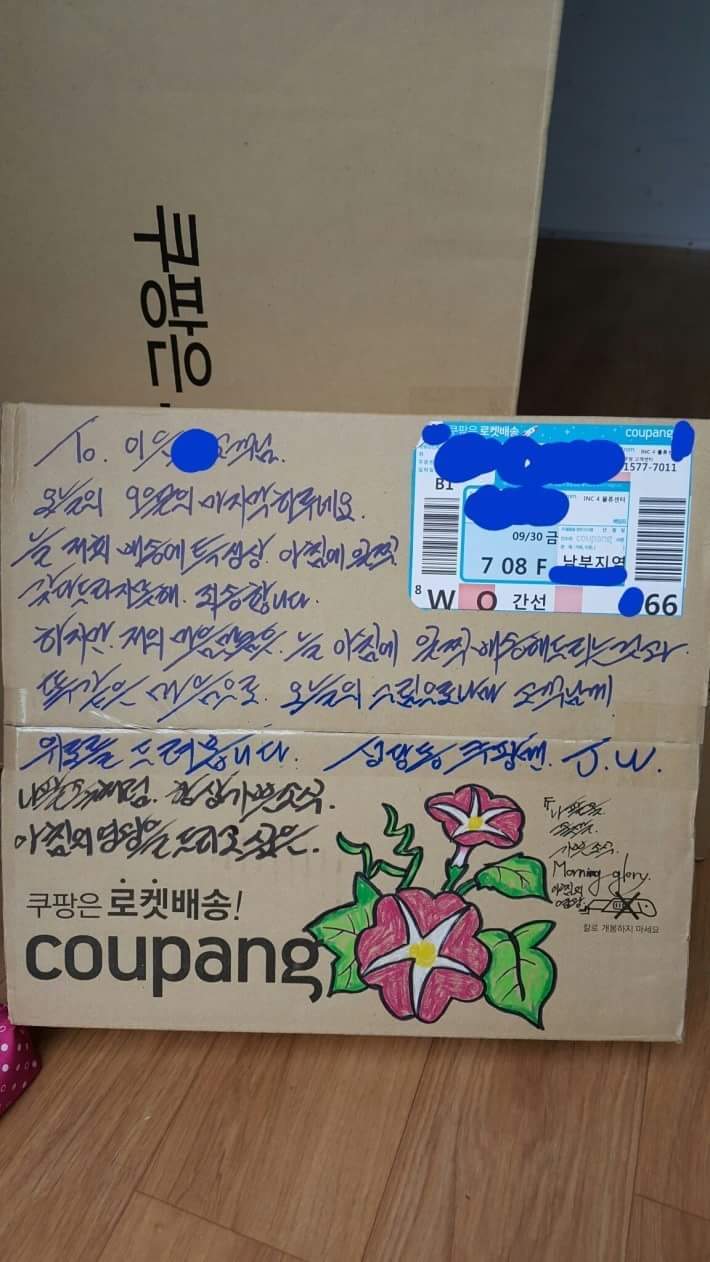 쿠팡은
To. 이 고객님.
쿠팡은 로켓배송
coupang
1577-7011
B1
INC 4 물류센터
INC 4 물류센터
오늘의 마지막하루네요.
09/30 금
늘 저희 배송에 특성상. 아침에 일찍
coupang
7 08 F 남부지역
죄송합니다.
8 W O 간선 66
하지만. 저의 마음만큼은. 늘 아침에 일찍 배송해드리는것과.
똑같은 마음으로. 오늘의 그림으로나마 고객님께
위로를 드려봅니다. 쿠팡맨. J.W.
나팔꽃처럼. 항상 기쁜소식.
아침의 영광을 드리고 싶은.
나팔꽃.
기쁜 소식.
Morning glory.
아침의
영광.
칼로 개봉하지 마세요
쿠팡은 로켓배송!
coupang